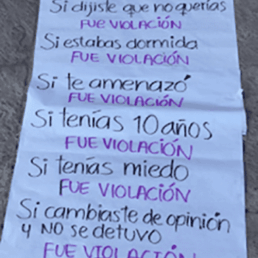 Si dijiste que no querías
FUE VIOLACIÓN
Si estabas dormida
FUE VIOLACIÓN
Si te amenazó
FUE VIOLACIÓN
Si tenías 10 años
FUE VIOLACIÓN
Si tenías miedo
FUE VIOLACIÓN
Si cambiaste de opinión
y NO se detuvo
FUE VIOLACIÓN